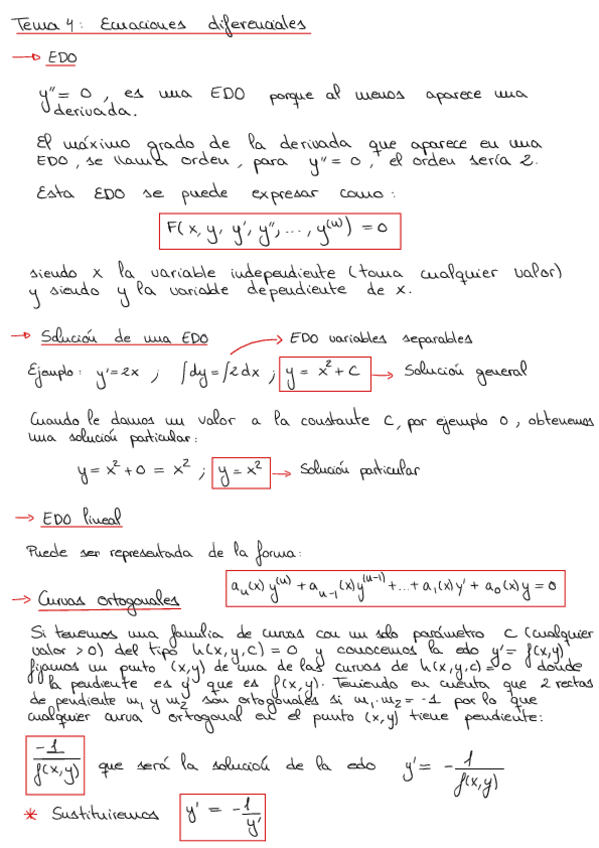 Tema 4: Ecuaciones diferenciales
→ EDO
y'' = 0, es una EDO porque al menos aparece una
derivada.
El máximo grado de la derivada que aparece en una
EDO, se llama orden, para y'' = 0, el orden sería 2.
Esta EDO se puede expresar como:
F(x, y, y', y'', ..., y⁽ⁿ⁾) = 0
siendo x la variable independiente (toma cualquier valor)
y siendo y la variable dependiente de x.
→ Solución de una EDO → EDO variables separables
Ejemplo: y' = 2x ; ∫dy = ∫2dx ; y = x² + C → Solución general
Cuando le damos un valor a la constante C, por ejemplo 0, obtenemos
una solución particular:
y = x² + 0 = x² ; y = x² → Solución particular
→ EDO lineal
Puede ser representada de la forma:
aₙ(x) y⁽ⁿ⁾ + aₙ₋₁(x) y⁽ⁿ⁻¹⁾ + ... + a₁(x) y' + a₀(x) y = 0
→ Curvas ortogonales
Si tenemos una familia de curvas con un solo parámetro C (cualquier
valor > 0) del tipo h(x, y, c) = 0 y conocemos la edo y' = f(x, y)
fijamos un punto (x, y) de una de las curvas de h(x, y, c) = 0 donde
la pendiente es y' que es f(x, y). Teniendo en cuenta que 2 rectas
de pendiente m₁ y m₂ son ortogonales si m₁ · m₂ = -1 por lo que
cualquier curva ortogonal en el punto (x, y) tiene pendiente:
-1/f(x, y) que será la solución de la edo y' = -1/f(x, y)
* Sustituiremos y' = -1/y'